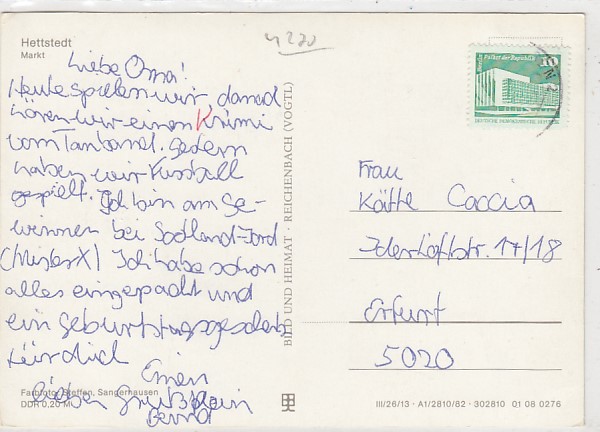 Hettstedt
Markt
4220
Liebe Oma!
Heute spielen wir, danach
hören wir einen Krimi
vom Tonband. Gestern
haben wir Fussball
gespielt. Ich bin am Ge-
winnen bei Scotland-Yard
(Mister X) Ich habe schon
alles eingepackt und
ein Geburtstagsgeschenk
für dich
Einen
lieben Gruß
Bernd
BILD UND HEIMAT · REICHENBACH (VOGTL)
Palast der Republik
10
DEUTSCHE DEMOKRATISCHE REPUBLIK
Frau
Käthe Caccia
17/18
Erfurt
5020
Farbfoto: Steffen, Sangerhausen
DDR 0,20 M
III/26/13 · A1/2810/82 · 302810 01 08 0276